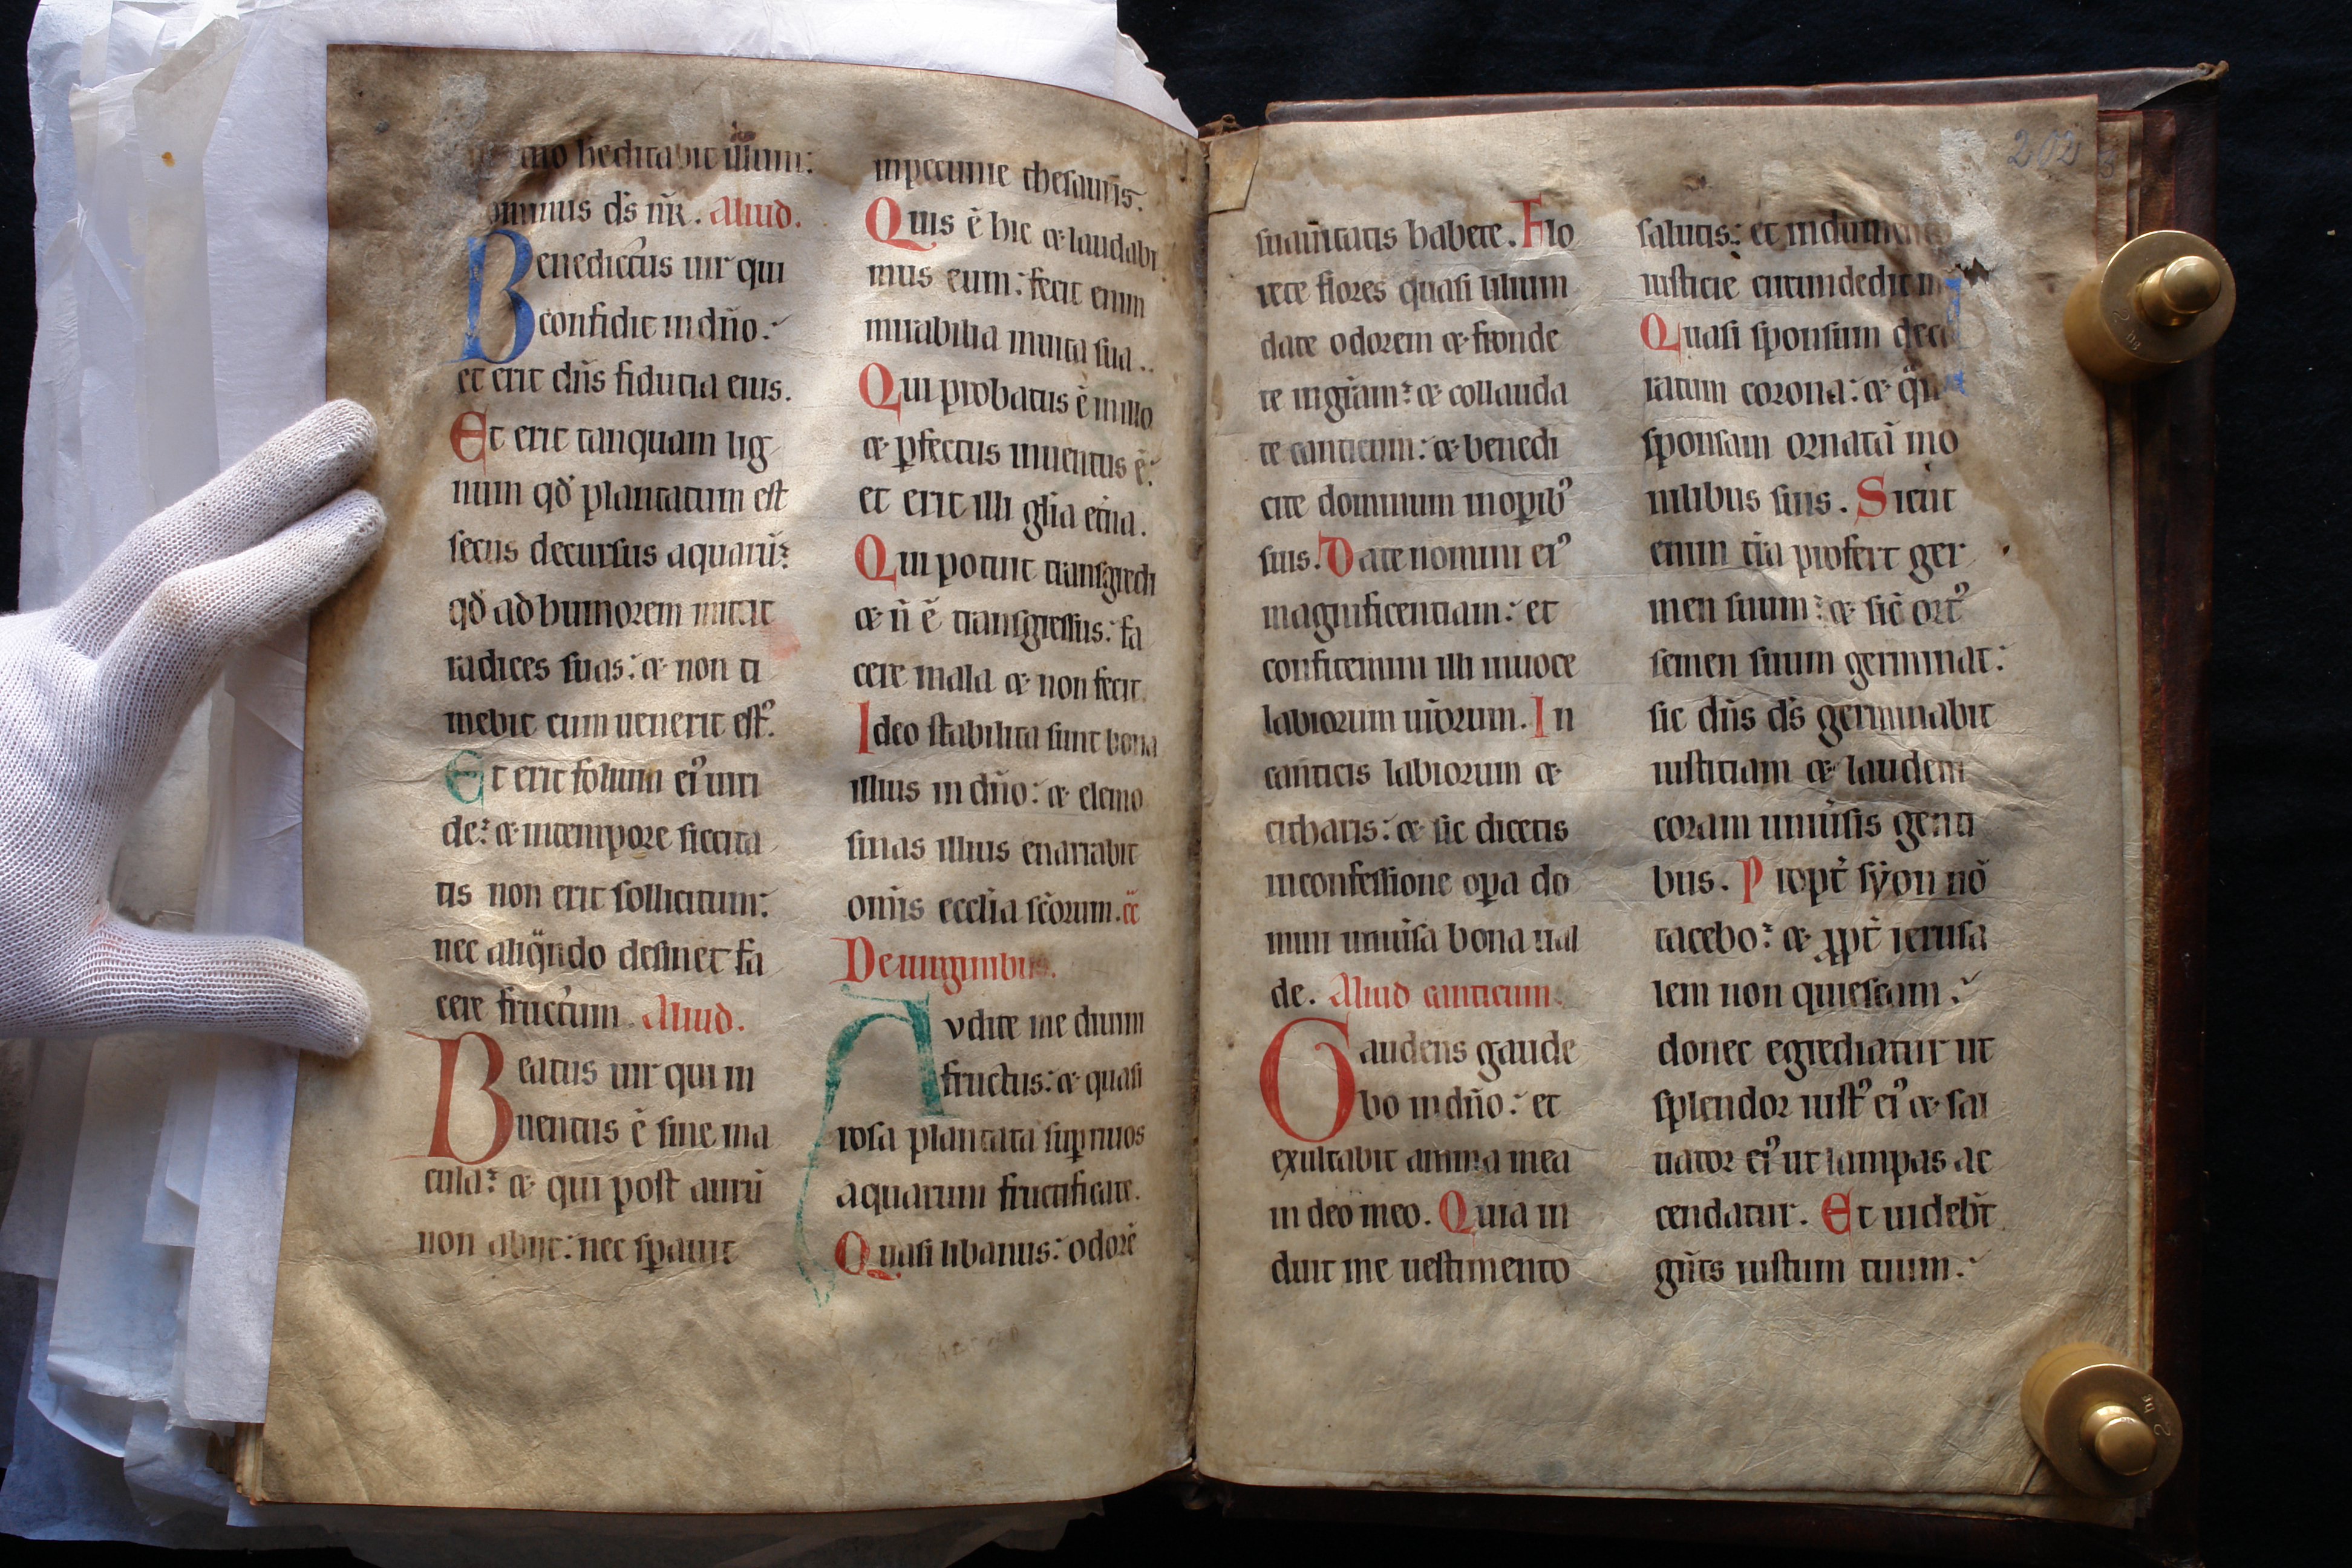 mo hereditabit illum:
ominus ds nr. Aliud.
Benedictus uir qui
confidit in dno:
et erit dns fiducia eius.
Et erit tanquam lig
num qd plantatum est
secus decursus aquarū:
qd ad humorem mittit
radices suas: & non ti
mebit cum uenerit est9.
Et erit folium ei9 uiri
de: & in tempore siccita
tis non erit sollicitum:
nec aliqndo desinet fa
cere fructum. Aliud.
Beatus uir qui in
uentus ē sine ma
cula: & qui post aurū
non abijt: nec spauit
in peccunie thesauris.
Quis ē hic & laudabi
mus eum: fecit enim
mirabilia in uita sua.
Qui probatus ē in illo
& pfectus inuentus ē:
et erit illi glia etna.
Qui potuit transgredi
& n̄ ē transgressus: fa
cere mala & non fecit.
Ideo stabilita sunt bona
illius in dno: & elemo
sinas illius enarrabit
omis ecclia scorum.
De uirginibus.
Avdite me diuini
fructus: & quasi
rosa plantata sup riuos
aquarum fructificate.
Quasi libanus: odorē
suauitatis habete. Flo
rete flores quasi lilium
date odorem & fronde
te in gram: & collauda
te canticum: & benedi
cite dominum in opib9
suis. Date nomini ei9
magnificentiam: et
confitemini illi in uoce
labiorum urorum. In
canticis labiorum &
citharis: & sic dicetis
in confessione opa do
mini uniusa bona ual
de. Aliud canticum.
Gaudens gaude
bo in dno: et
exultabit anima mea
in deo meo. Quia in
duit me uestimento
salutis: et indumento
iusticie circundedit m
Quasi sponsum deco
ratum corona: & q̄si
sponsam ornatā mo
nilibus suis. Sicut
enim tra profert ger
men suum: & sic ort9
semen suum germinat:
sic dns ds germinabit
iustitiam & laudem
coram uniusis genti
bus. Propt syon nō
tacebo: & ppt ierusa
lem non quiescam:
donec egrediatur ut
splendor iust9 ei9 & sal
uator ei9 ut lampas ac
cendatur. Et uidebt
gntes iustum tuum:
202